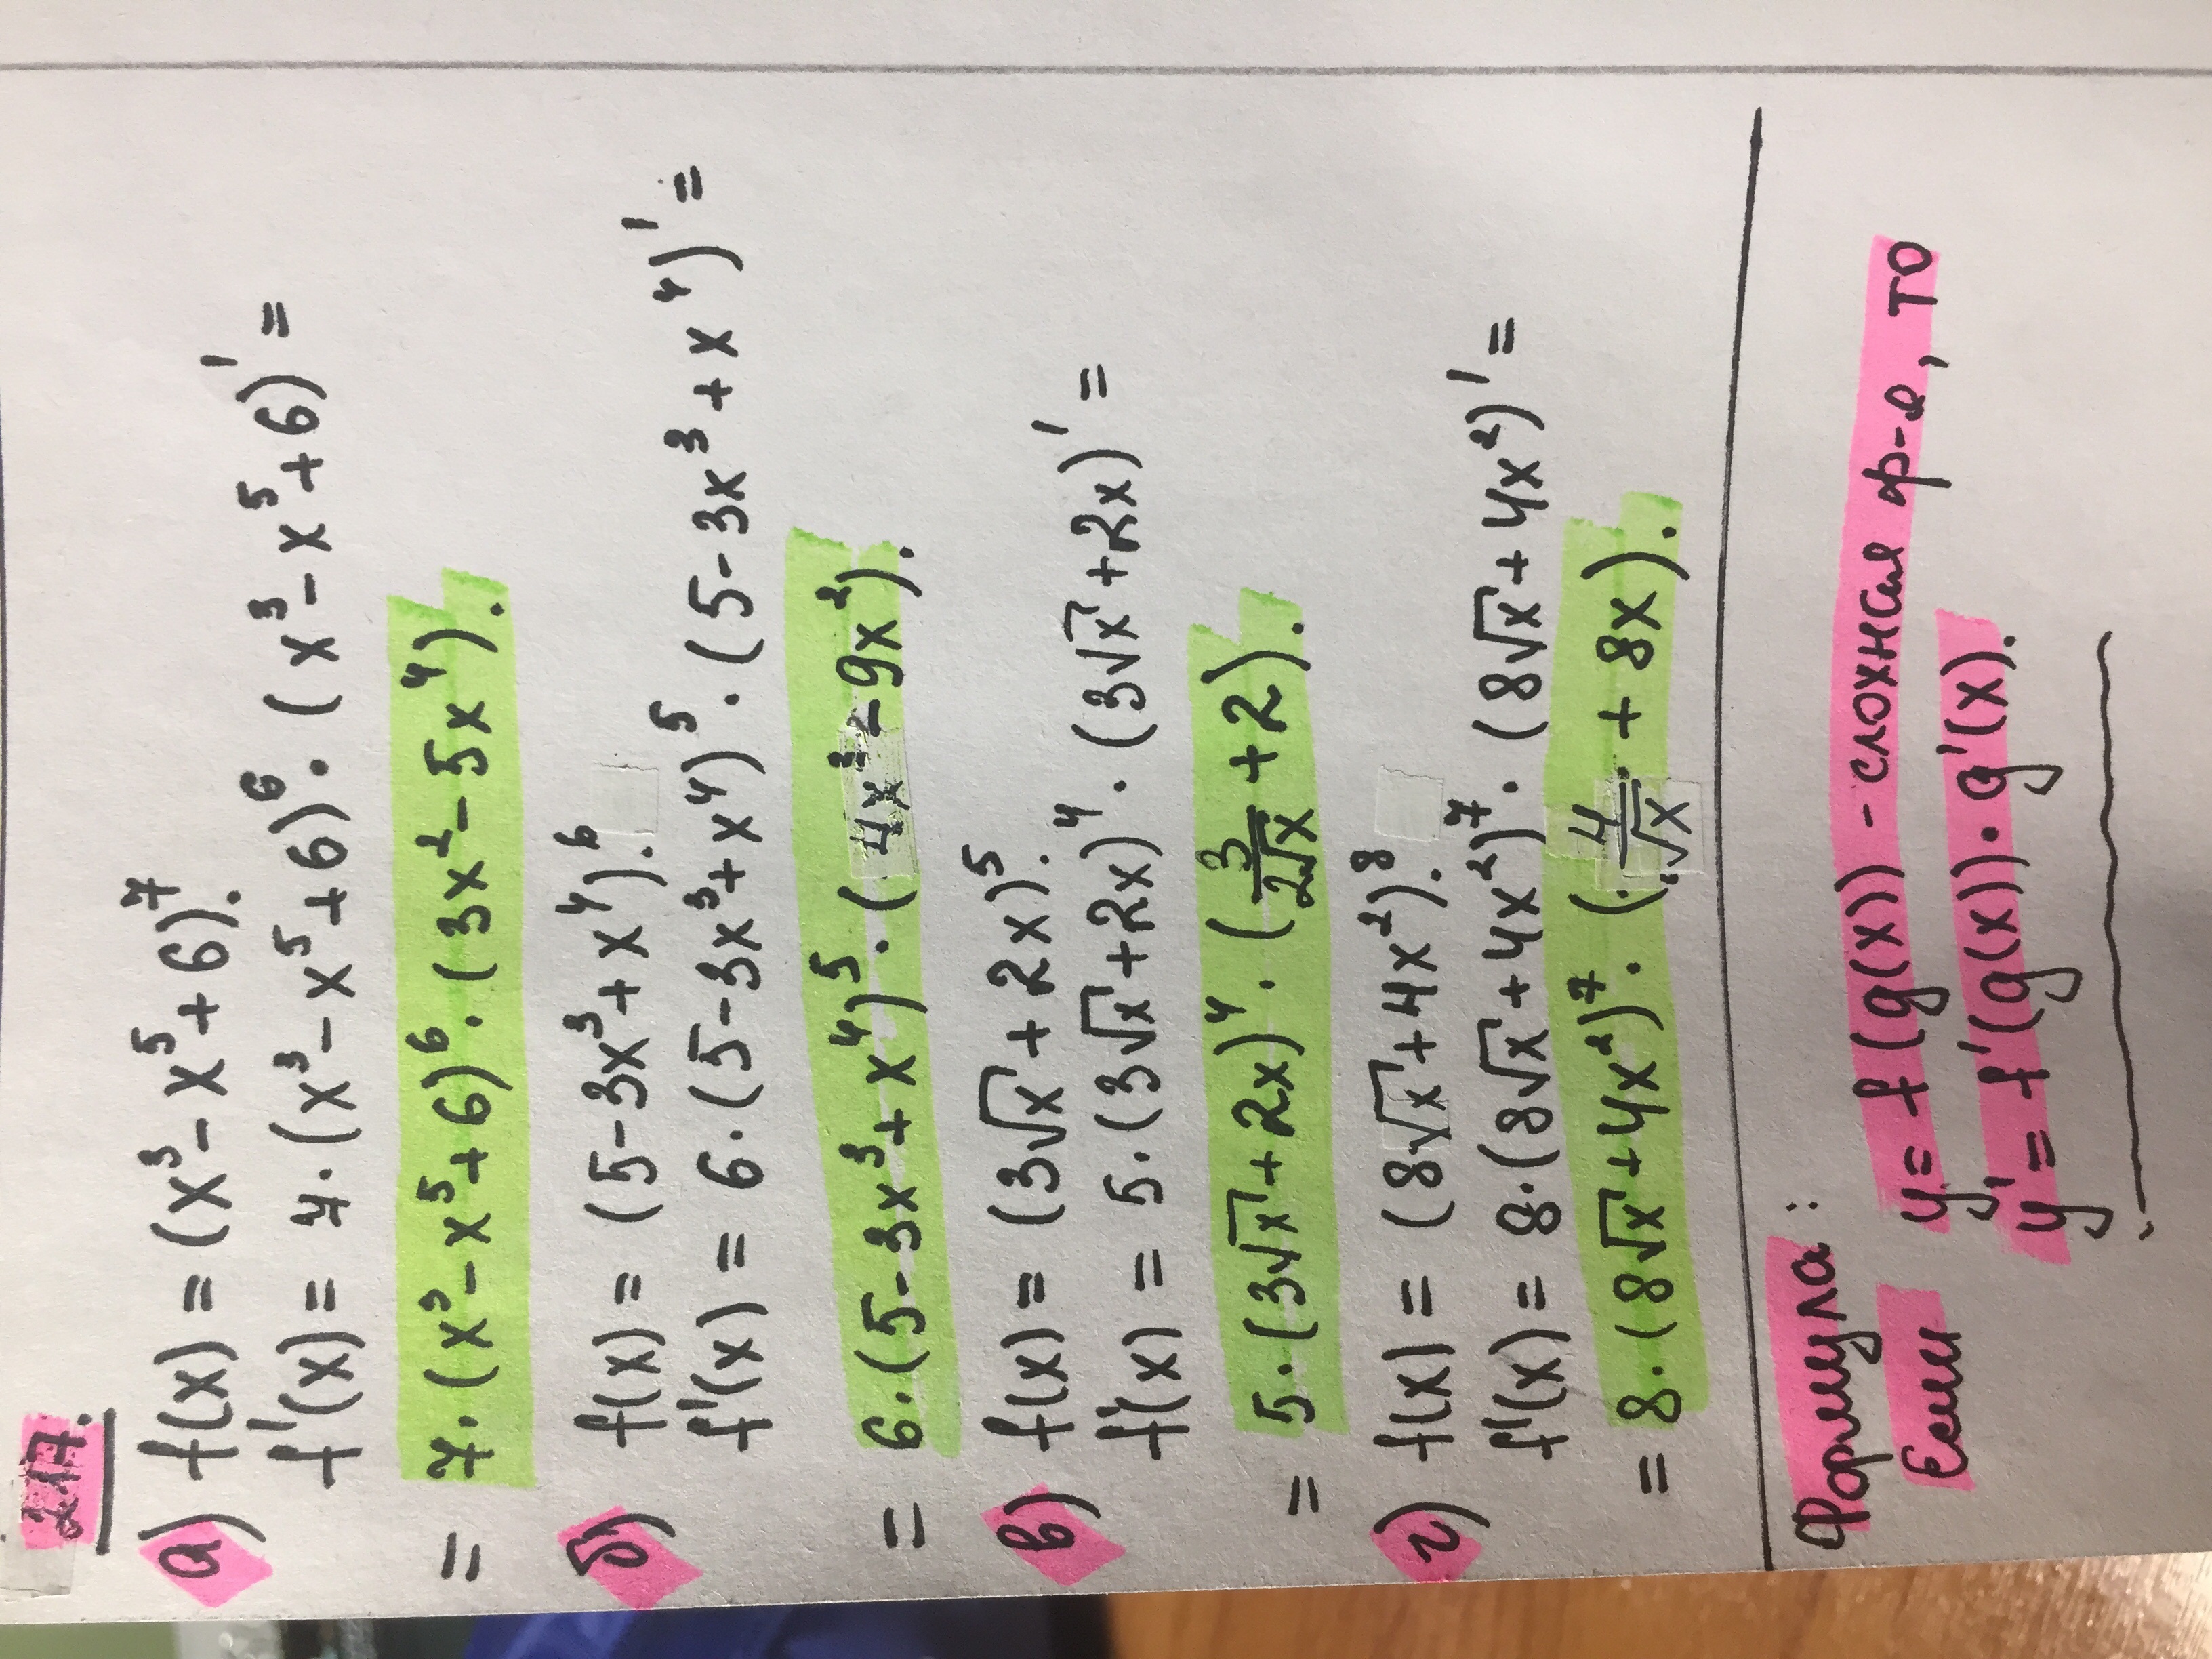 217.
а) f(x) = (x³ - x⁵ + 6)⁷.
f'(x) = 7·(x³ - x⁵ + 6)⁶·(x³ - x⁵ + 6)' =
= 7·(x³ - x⁵ + 6)⁶·(3x² - 5x⁴).
б) f(x) = (5 - 3x³ + x⁴)⁶.
f'(x) = 6·(5 - 3x³ + x⁴)⁵·(5 - 3x³ + x⁴)' =
= 6·(5 - 3x³ + x⁴)⁵·(4x³ - 9x²).
в) f(x) = (3√x + 2x)⁵.
f'(x) = 5·(3√x + 2x)⁴·(3√x + 2x)' =
= 5·(3√x + 2x)⁴·(3/2√x + 2).
г) f(x) = (8√x + 4x²)⁸.
f'(x) = 8·(8√x + 4x²)⁷·(8√x + 4x²)' =
= 8·(8√x + 4x²)⁷·(4/√x + 8x).
Формула:
Если y = f(g(x)) - сложная ф-я, то
y' = f'(g(x))·g'(x).